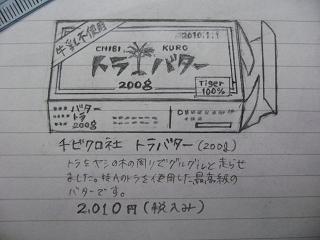 牛乳不使用
2010.1.1
CHIBI KURO
トラバター
200g
Tiger
100%
バター
トラ
200g
チビクロ社 トラバター(200g)
トラをヤシの木の周りでグルグルと走らせ
ました。特Aのトラを使用した最高級の
バターです。
2,010円(税込み)